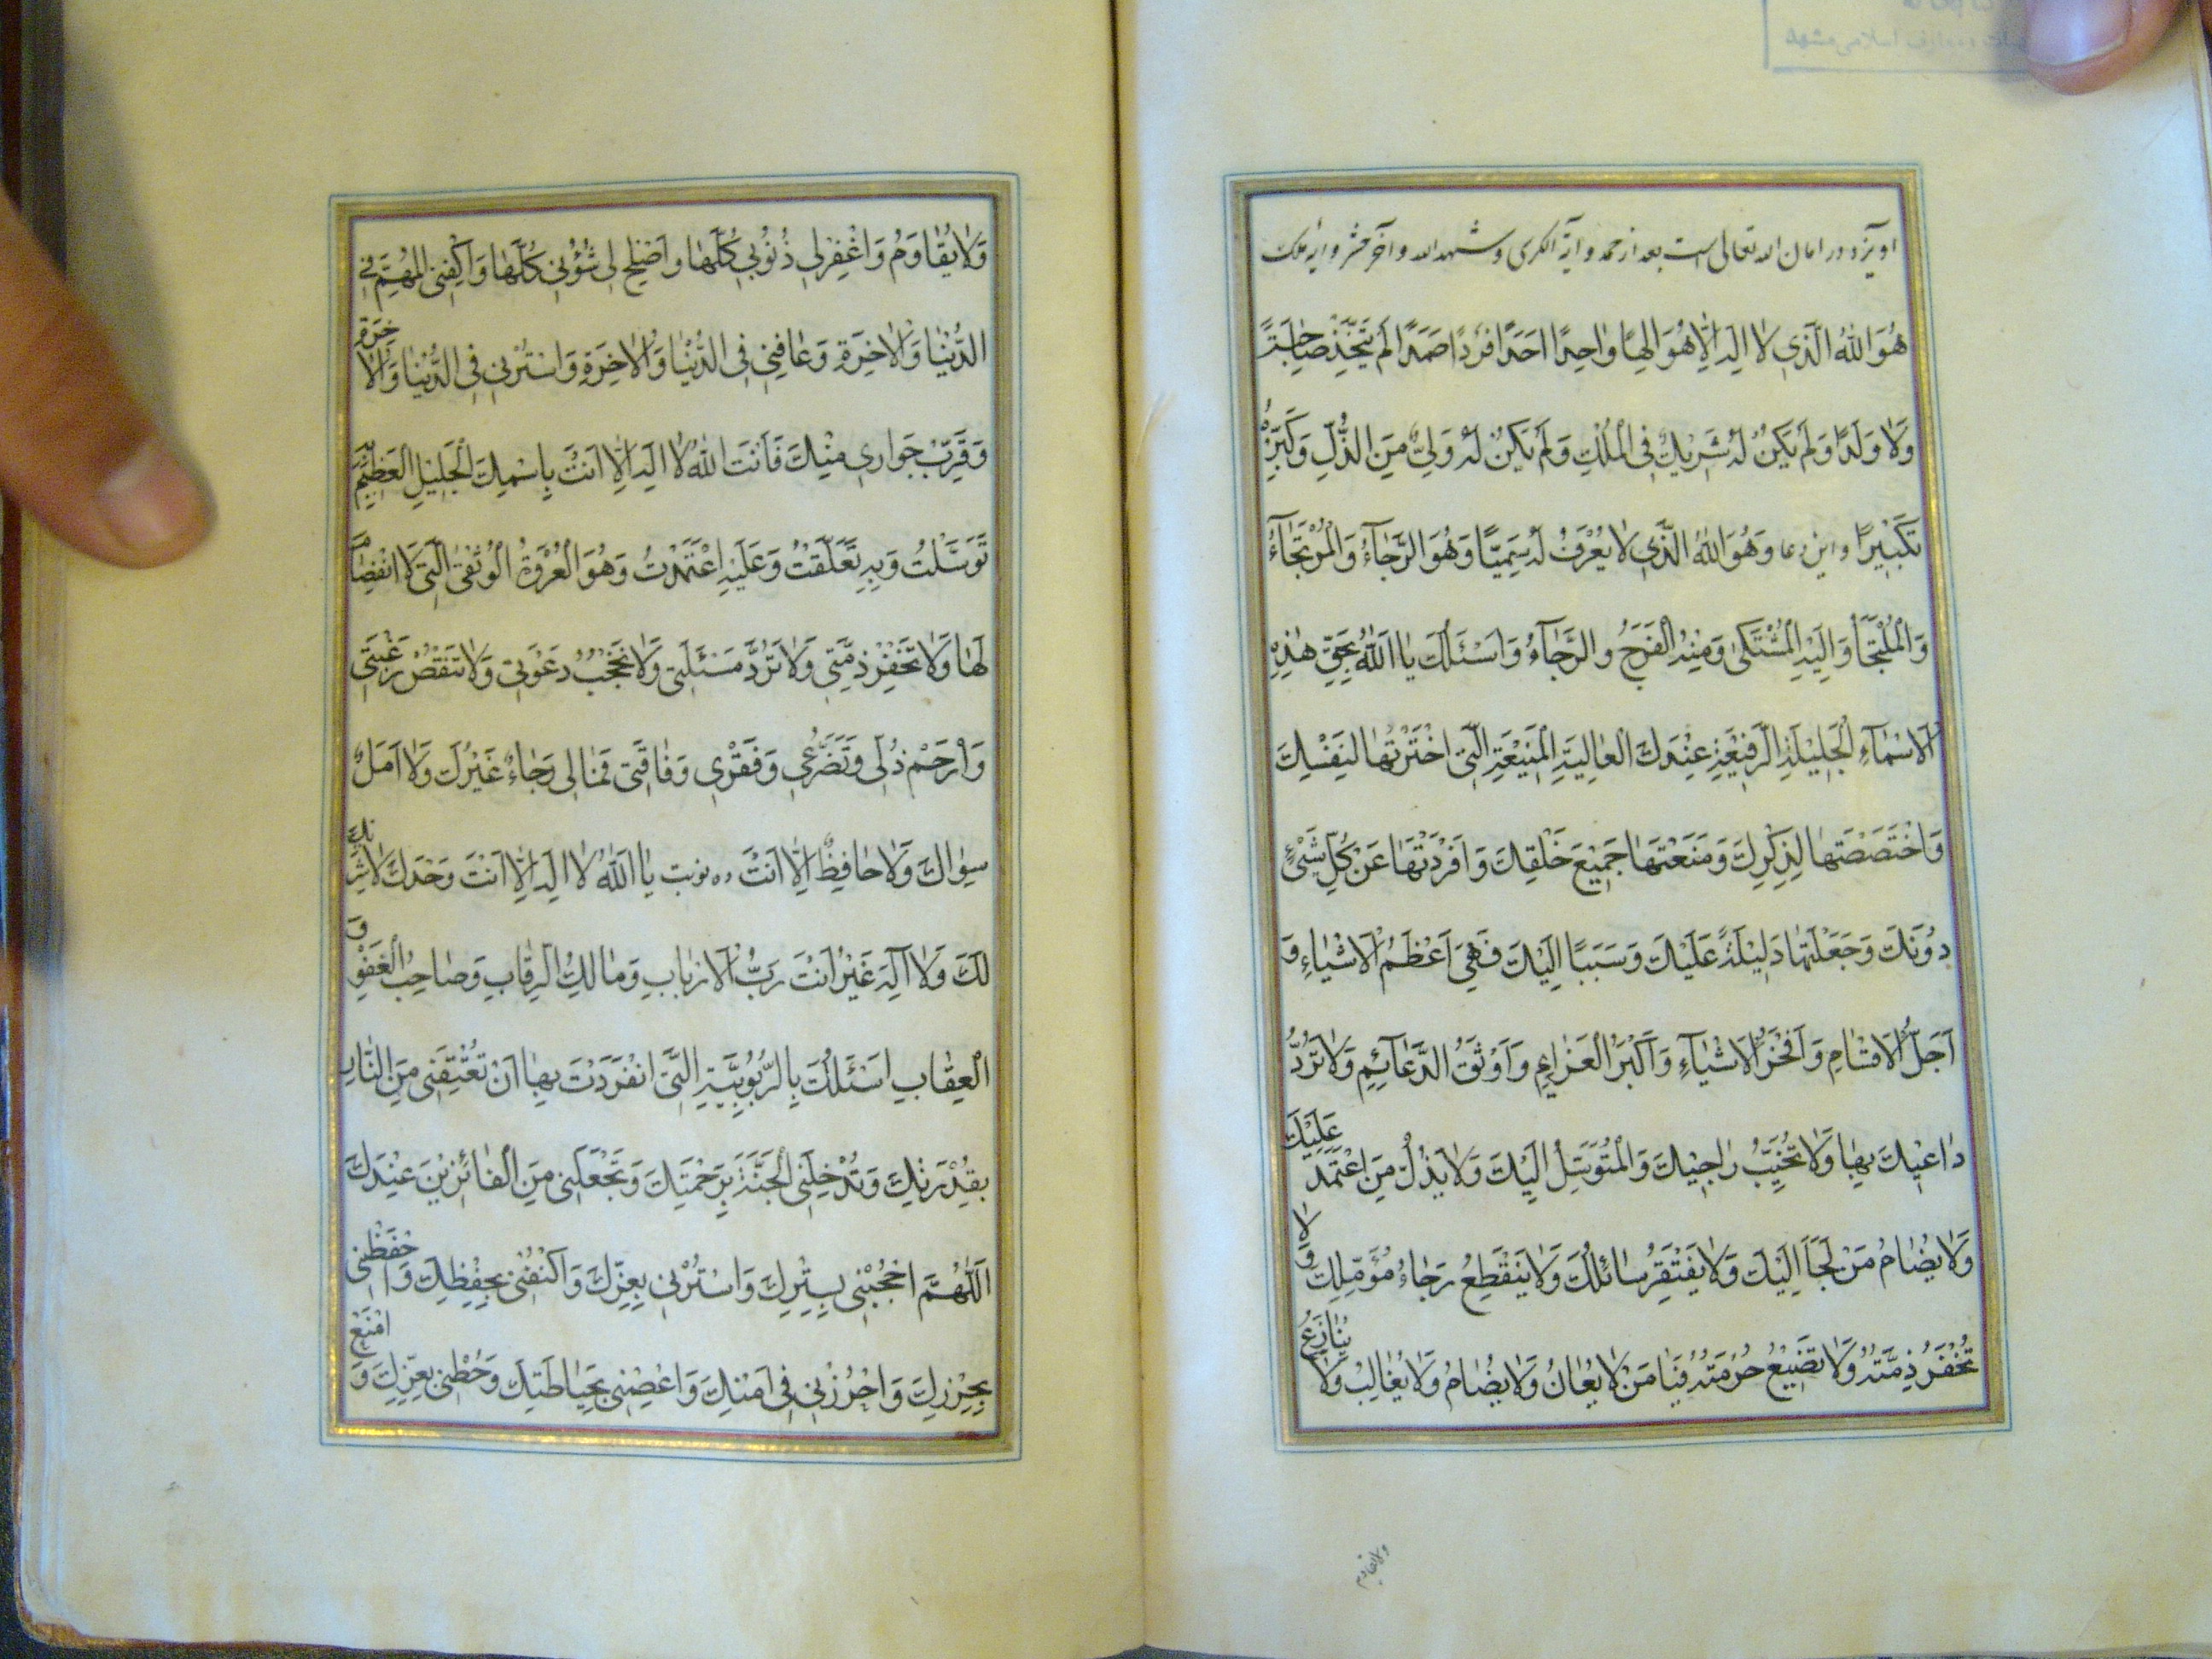 معارف اسلامی مشهد
او یزد در امان الله تعالی است بعد از حمد و ایة الکری و شهد الله و آخر حشر و ایة ملک
هُوَ اللهُ الَّذی لا اِلهَ اِلّا هُوَ اِلهًا واحِدًا اَحَدًا فَرْدًا صَمَدًا لَمْ یَتَّخِذْ صاحِبَةً
وَلا وَلَدًا وَلَمْ یَکُنْ لَهُ شَریكٌ فِی الْمُلْكِ وَلَمْ یَکُنْ لَهُ وَلِیٌّ مِنَ الذُّلِّ وَکَبِّرْهُ
تَکْبیرًا و این دعا وَهُوَ اللهُ الَّذی لا یُعْرَفُ لَهُ سَمِیًّا وَهُوَ الرَّجاءُ وَالْمُرْتَجاءُ
وَالْمُلْتَجَأُ وَاِلَیْهِ الْمُشْتَکیٰ وَمِنْهُ الْفَرَجُ وَالرَّجآءُ وَاَسْئَلُكَ یا اَللهُ بِحَقِّ هٰذِهِ
الْاَسْمآءِ الْجَلیلَةِ الرَّفیعَةِ عِنْدَكَ الْعالِیَةِ الْمَنیعَةِ الَّتی اخْتَرْتَها لِنَفْسِكَ
وَاخْتَصَصْتَها لِذِکْرِكَ وَمَنَعْتَها جَمیعَ خَلْقِكَ وَاَفْرَدْتَها عَنْ کُلِّ شَیْءٍ
دُونَكَ وَجَعَلْتَها دَلیلَةً عَلَیْكَ وَسَبَبًا اِلَیْكَ فَهِیَ اَعْظَمُ الْاَشْیاءِ وَ
اَجَلُّ الْاَقْسامِ وَاَفْخَرُ الْاَشْیآءِ وَاَکْبَرُ الْعَزائِمِ وَاَوْثَقُ الدَّعآئِمِ وَلا تَرُدُّ
داعیكَ بِها وَلا تُخَیِّبُ راجیكَ وَالْمُتَوَسِّلُ اِلَیْكَ وَلا یَذِلُّ مَنِ اعْتَمَدَ عَلَیْكَ
وَلا یُضامُ مَنْ لَجَأَ اِلَیْكَ وَلا یَفْتَقِرُ سائِلُكَ وَلا یَنْقَطِعُ رَجاءُ مُؤَمِّلِكَ وَلا
تُخْفَرُ ذِمَّتُهُ وَلا تَضیعُ حُرْمَتُهُ فَیا مَنْ لا یُعانُ وَلا یُضامُ وَلا یُغالَبُ وَلا یُنازَعُ
ولایقاوم
وَلا یُقاوَمُ وَاغْفِرْ لی ذُنُوبی کُلَّها وَاَصْلِحْ لی شُؤُنی کُلَّها وَاکْفِنِی الْمُهِمَّ فی
الدُّنْیا وَالْاٰخِرَةِ وَعافِنی فِی الدُّنْیا وَالْاٰخِرَةِ وَاسْتُرْنی فِی الدُّنْیا وَالْاٰخِرَةِ
وَقَرِّبْ جَواری مِنْكَ فَاَنْتَ اللهُ لا اِلهَ اِلّا اَنْتَ بِاسْمِكَ الْجَلیلِ الْعَظیمِ
تَوَسَّلْتُ وَبِهِ تَعَلَّقْتُ وَعَلَیْهِ اعْتَمَدْتُ وَهُوَ الْعُرْوَةُ الْوُثْقیٰ الَّتی لَا انْفِصامَ
لَها وَلا تُخْفِرْ ذِمَّتی وَلا تَرُدَّ مَسْئَلَتی وَلا تَحْجُبْ دَعْوَتی وَلا تَنْقُصْ رَغْبَتی
وَارْحَمْ ذُلّی وَتَضَرُّعی وَفَقْری وَفاقَتی فَما لی رَجاءٌ غَیْرُكَ وَلا اَمَلٌ
سِواكَ وَلا حافِظٌ اِلّا اَنْتَ ده نوبت یا اَللهُ لا اِلهَ اِلّا اَنْتَ وَحْدَكَ لا شَریكَ
لَكَ وَلا اِلهَ غَیْرُ اَنْتَ رَبُّ الْاَرْبابِ وَمالِكُ الرِّقابِ وَصاحِبُ الْعَفْوِ وَ
الْعِقابِ اَسْئَلُكَ بِالرُّبُوبِیَّةِ الَّتی انْفَرَدْتَ بِها اَنْ تُعْتِقَنی مِنَ النّارِ
بِقُدْرَتِكَ وَتُدْخِلَنِی الْجَنَّةَ بِرَحْمَتِكَ وَتَجْعَلَنی مِنَ الْفائِزینَ عِنْدَكَ
اَللّٰهُمَّ احْجُبْنی بِسِتْرِكَ وَاسْتُرْنی بِعِزِّكَ وَاکْنُفْنی بِحِفْظِكَ وَاحْفَظْنی
بِحِرْزِكَ وَاحْرُزْنی فی اَمْنِكَ وَاعْصِمْنی بِحِیاطَتِكَ وَحُطْنی بِعِزِّكَ وَامْنَعْ